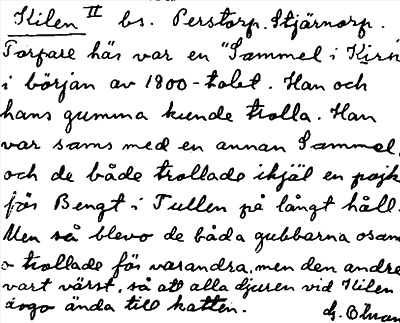 Kilen II bs. Perstorp. Stjärnorp.
Torpare här var en "Sammel i Kirn
i början av 1800-talet. Han och
hans gumma kunde trolla. Han
var sams med en annan Sammel,
och de både trollade ihjäl en pojk
för Bengt i Tullen på långt håll.
Men så blevo de båda gubbarna osam
o trollade för varandra, men den andre
vart värst, så att alla djuren vid Kilen
drogo ända till katten.